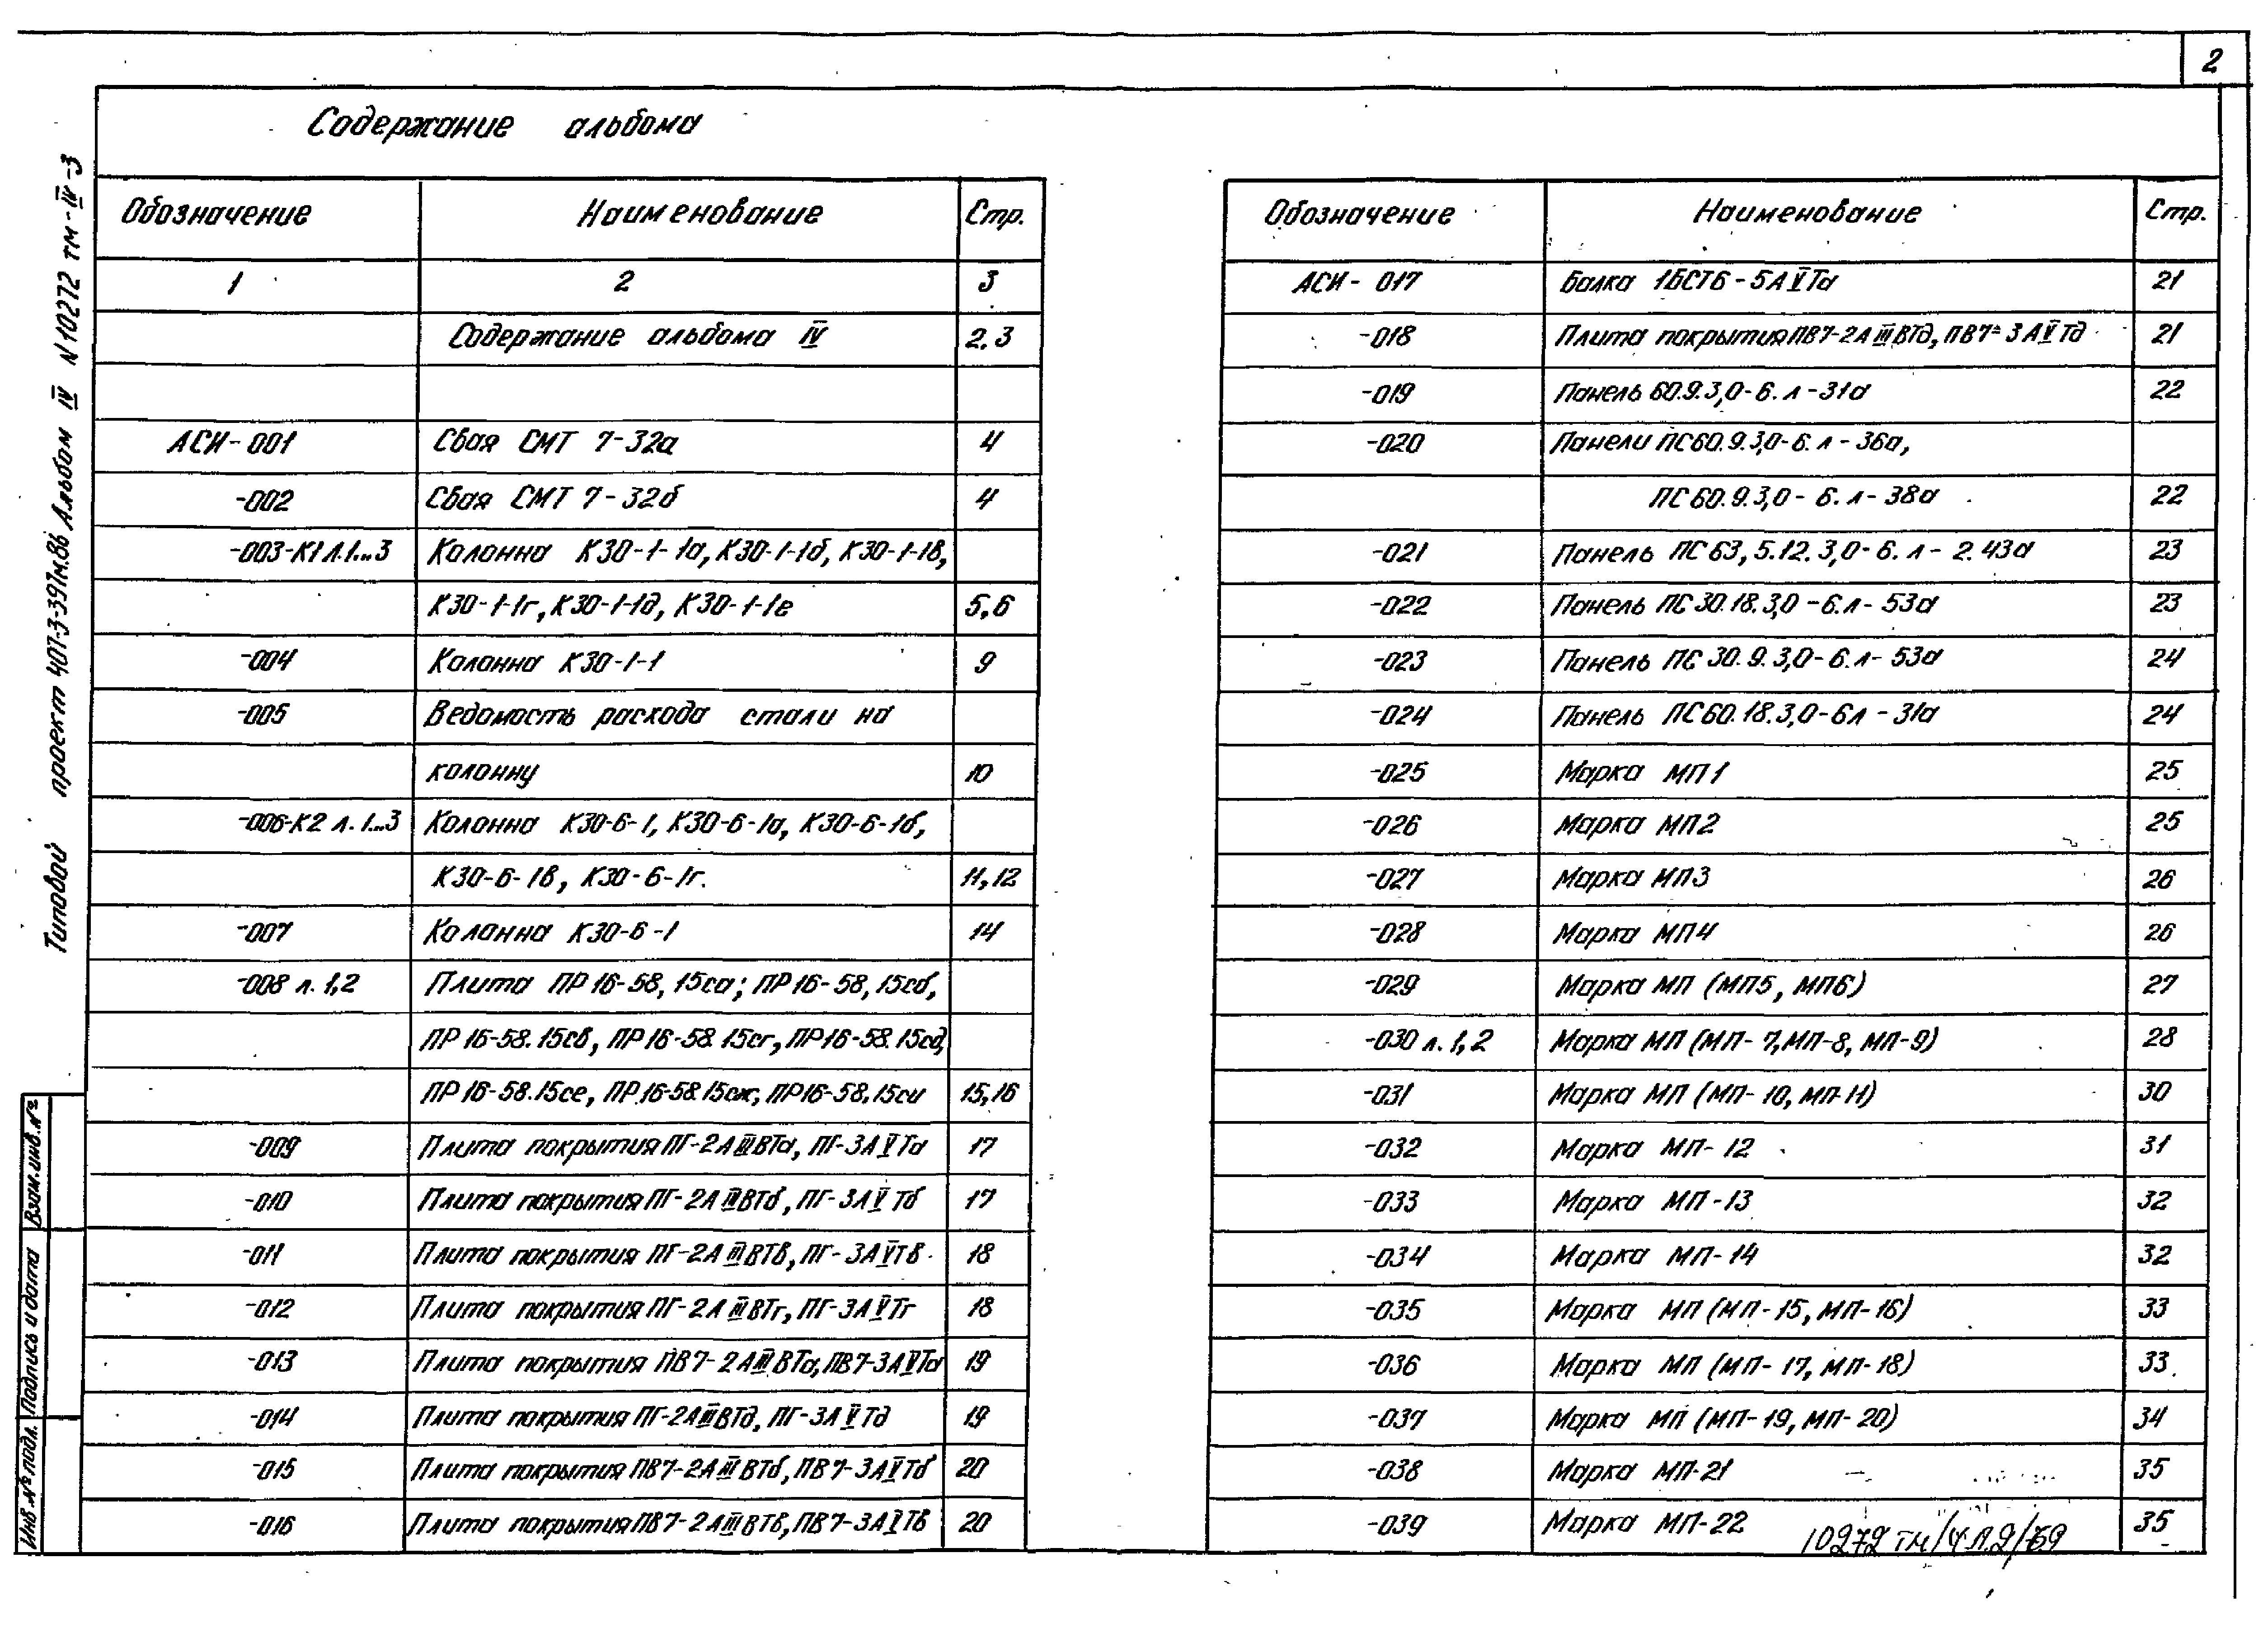 2
Содержание альбома
Обозначение Наименование Стр.
1 2 3
Содержание альбома IV 2,3
АСИ-001 Свая СМТ 7-32а 4
-002 Свая СМТ 7-32б 4
-003-К1 л.1...3 Колонна К30-1-1а, К30-1-1б, К30-1-1в,
К30-1-1г, К30-1-1д, К30-1-1е 5,6
-004 Колонна К30-1-1 9
-005 Ведомость расхода стали на
колонну 10
-006-К2 л.1...3 Колонна К30-6-1, К30-6-1а, К30-6-1б,
К30-6-1в, К30-6-1г. 11,12
-007 Колонна К30-6-1 14
-008 л.1,2 Плита ПР16-58,15са; ПР16-58,15сб,
ПР16-58.15св, ПР16-58.15сг, ПР16-58.15сд,
ПР16-58.15се, ПР16-58.15сж, ПР16-58.15си 15,16
-009 Плита покрытия ПГ-2АIIIВТа, ПГ-3АVТа 17
-010 Плита покрытия ПГ-2АIIIВТб, ПГ-3АVТб 17
-011 Плита покрытия ПГ-2АIIIВТв, ПГ-3АVТв 18
-012 Плита покрытия ПГ-2АIIIВТг, ПГ-3АVТг 18
-013 Плита покрытия ПВ7-2АIIIВТа, ПВ7-3АVТа 19
-014 Плита покрытия ПГ-2АIIIВТд, ПГ-3АVТд 19
-015 Плита покрытия ПВ7-2АIIIВТб, ПВ7-3АVТб 20
-016 Плита покрытия ПВ7-2АIIIВТв, ПВ7-3АVТв 20
Обозначение Наименование Стр.
АСИ-017 Балка 1БСТ6-5АVТа 21
-018 Плита покрытия ПВ7-2АIIIВТд, ПВ7-3АVТд 21
-019 Панель 60.9.3,0-6.л-31а 22
-020 Панели ПС60.9.3,0-6.л-36а,
ПС60.9.3,0-6.л-38а 22
-021 Панель ПС63,5.12.3,0-6.л-2.43а 23
-022 Панель ПС30.18.3,0-6.л-53а 23
-023 Панель ПС30.9.3,0-6.л-53а 24
-024 Панель ПС60.18.3,0-6л-31а 24
-025 Марка МП1 25
-026 Марка МП2 25
-027 Марка МП3 26
-028 Марка МП4 26
-029 Марка МП (МП5, МП6) 27
-030 л.1,2 Марка МП (МП-7, МП-8, МП-9) 28
-031 Марка МП (МП-10, МП-11) 30
-032 Марка МП-12 31
-033 Марка МП-13 32
-034 Марка МП-14 32
-035 Марка МП (МП-15, МП-16) 33
-036 Марка МП (МП-17, МП-18) 33
-037 Марка МП (МП-19, МП-20) 34
-038 Марка МП-21 35
-039 Марка МП-22 35
10272 тм/4 л.2/59
Типовой проект 407-3-397м.86 Альбом IV N10272 тм-IV-3
Взам.инв.№
Подпись и дата
Инв.№ подл.